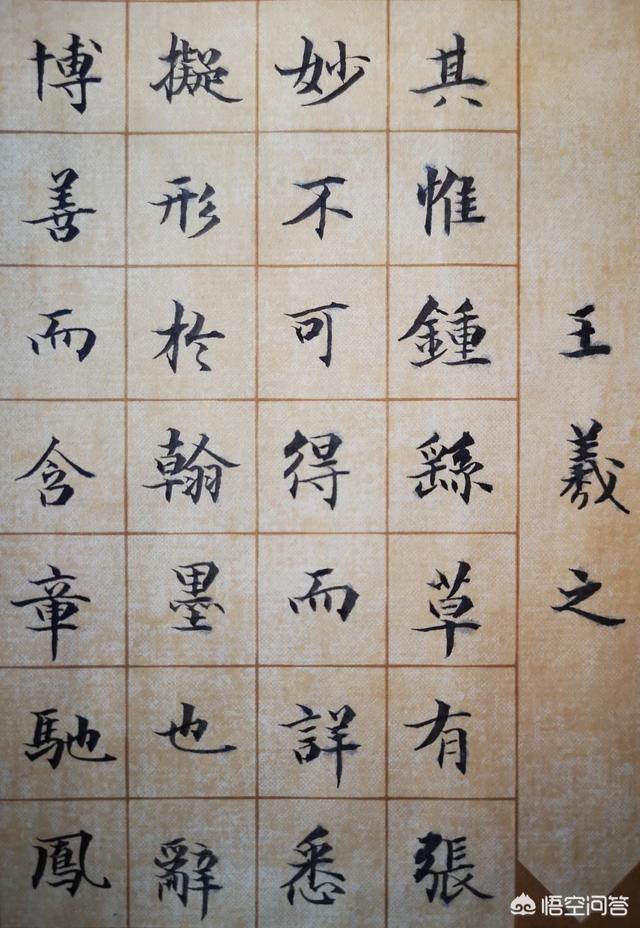 王羲之
其惟鍾繇草有張
妙不可得而詳悉
擬形於翰墨也辭
博善而含章馳鳳
悟空问答